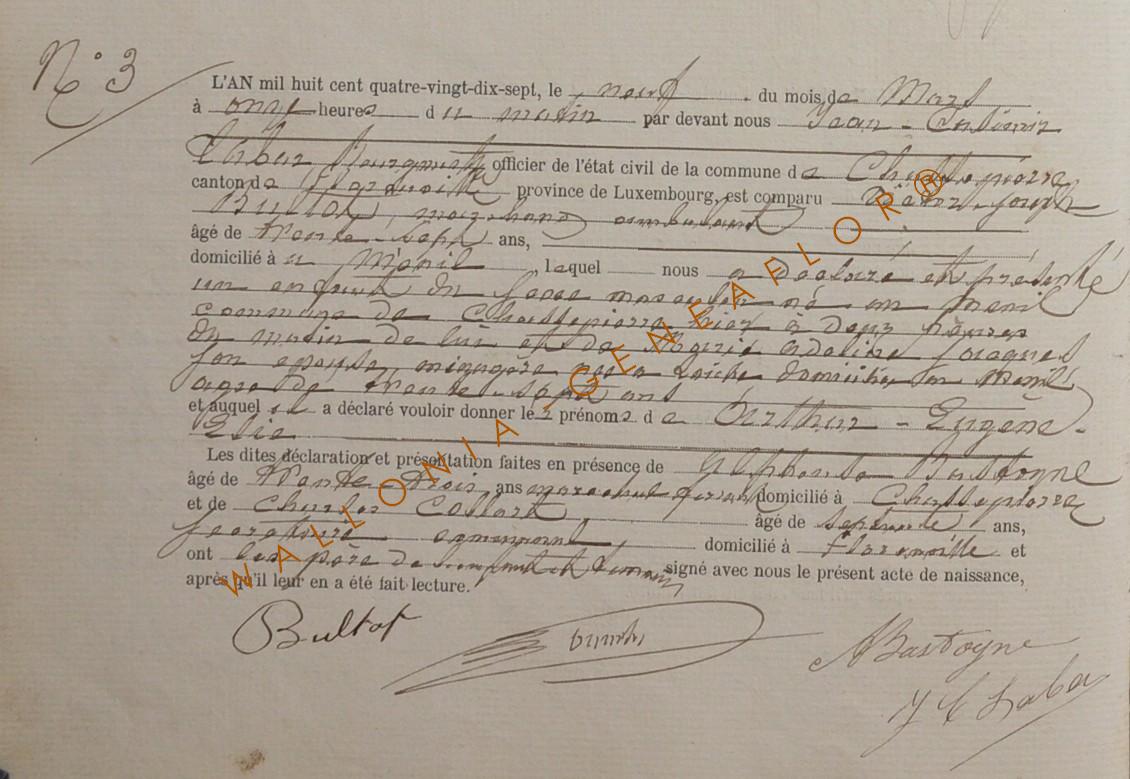 N° 3
L'AN mil huit cent quatre-vingt-dix-sept, le neuf du mois de Mars
à onze heures du matin par devant nous Jean - Casimir
Bourgmestre officier de l'état civil de la commune de Chassepierre
canton de Florenville province de Luxembourg, est comparu Joseph
Bultot, marchand ambulant
âgé de trente-sept ans,
domicilié à u Ménil, laquel nous a déclaré et présenté
un enfant du sexe masculin né au Menil
commune de Chassepierre hier à deux heures
du matin de lui et de Marie Adeline Jacques
son épouse, ménagère née à domiciliée au Ménil
agée de trente-sept ans
et auquel il a déclaré vouloir donner les prénoms de Arthur - Eugène -
Elie
Les dites déclaration et présentation faites en présence de Alphonse Bastogne
âgé de trente-trois ans maréchal ferrant domicilié à Chassepierre
et de Charles Collard, âgé de septante ans,
secrétaire communal, domicilié à Florenville et
ont les père de l'enfant et témoins signé avec nous le présent acte de naissance,
après qu'il leur en a été fait lecture.
Bultot
ABastogne
WALLONIA - GENEAFLOR®